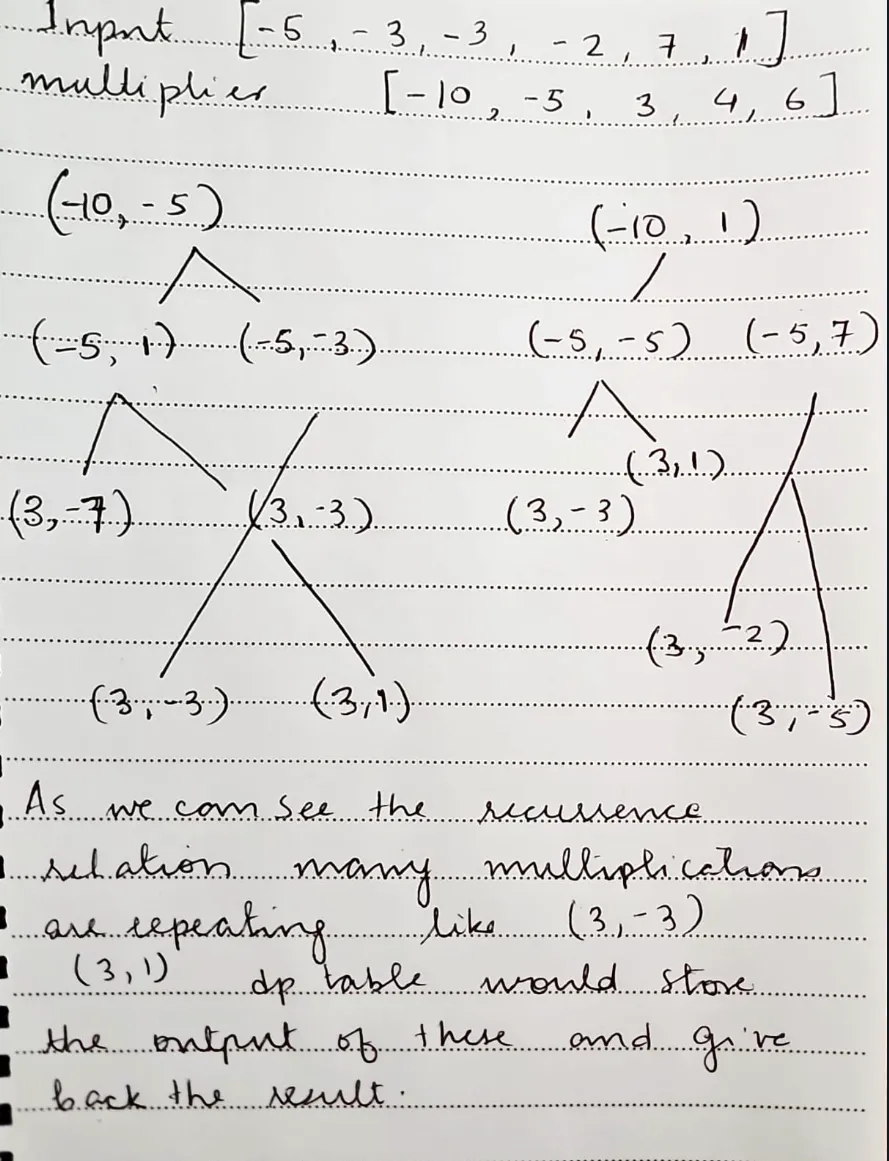 Input [-5, -3, -3, -2, 7, 1]
multiplier [-10, -5, 3, 4, 6]
(-10, -5) (-10, 1)
(-5, 1) (-5, -3) (-5, -5) (-5, 7)
(3, 1)
(3, -7) (3, -3) (3, -3)
(3, -2)
(3, -3) (3, 1) (3, -5)
As we can see the recurrence
relation many multiplications
are repeating like (3, -3)
(3, 1) dp table would store
the output of these and give
back the result.